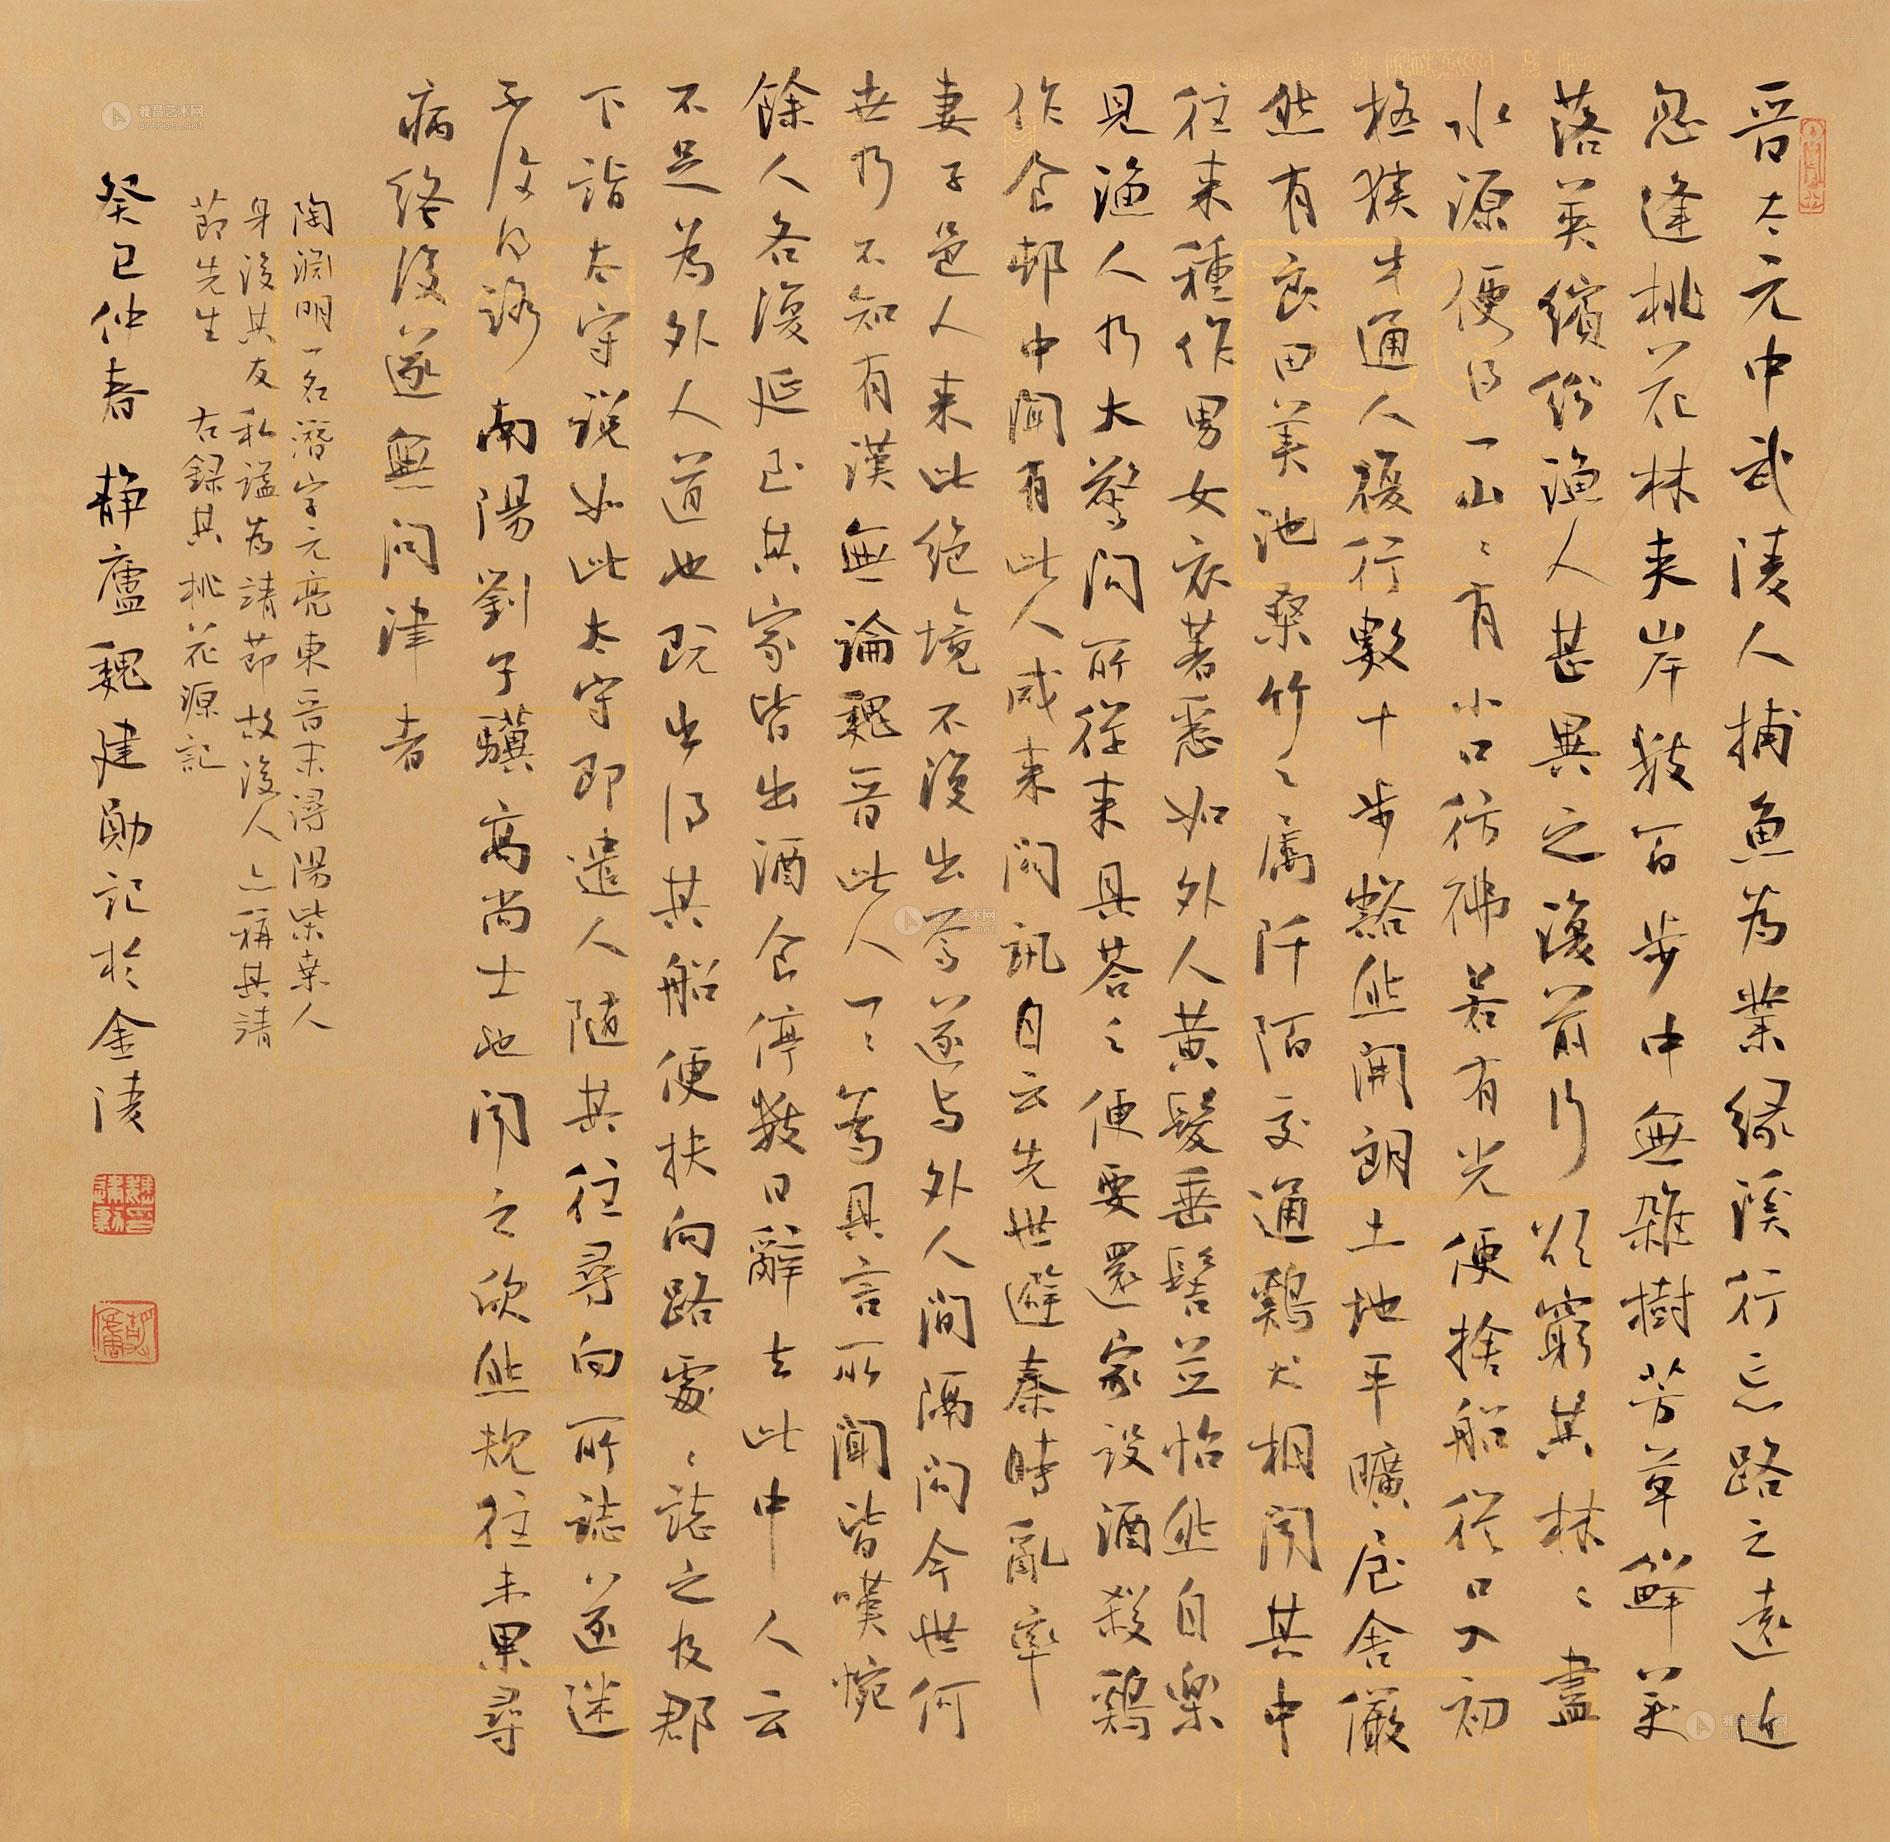 晉太元中武陵人捕魚為業緣溪行忘路之遠近
忽逢桃花林夾岸數百步中無雜樹芳草鮮美
落英繽紛漁人甚異之復前行欲窮其林〻盡
水源便得一山〻有小口彷彿若有光便捨船從口入初
極狹才通人復行數十步豁然開朗土地平曠屋舍儼
然有良田美池桑竹之属阡陌交通鷄犬相聞其中
往来種作男女衣著悉如外人黄髮垂髫並怡然自樂
見漁人乃大驚問所從来具荅之便要還家設酒殺鷄
作食邨中聞有此人咸来問訊自云先世避秦時亂率
妻子邑人来此绝境不復出焉遂与外人間隔问今世何
世乃不知有漢無論魏晉此人一〻為具言所聞皆嘆惋
餘人各復延至其家皆出酒食停數日辭去此中人云
不足為外人道也既出得其船便扶向路處〻誌之及郡
下詣太守説如此太守即遣人隨其往尋向所誌遂迷
不復得路南陽劉子驥高尚士也聞之欣然規往未果尋
病終後遂無问津者
陶淵明一名潛字元亮東晉末潯陽柴桑人
身後其友私謚為靖節故後人亦稱其靖
節先生 右録其桃花源記
癸巳仲春靜廬魏建勛記於金陵
雅昌艺术网
artron.net
雅昌艺术网
artron.net
雅昌艺术网
artron.net